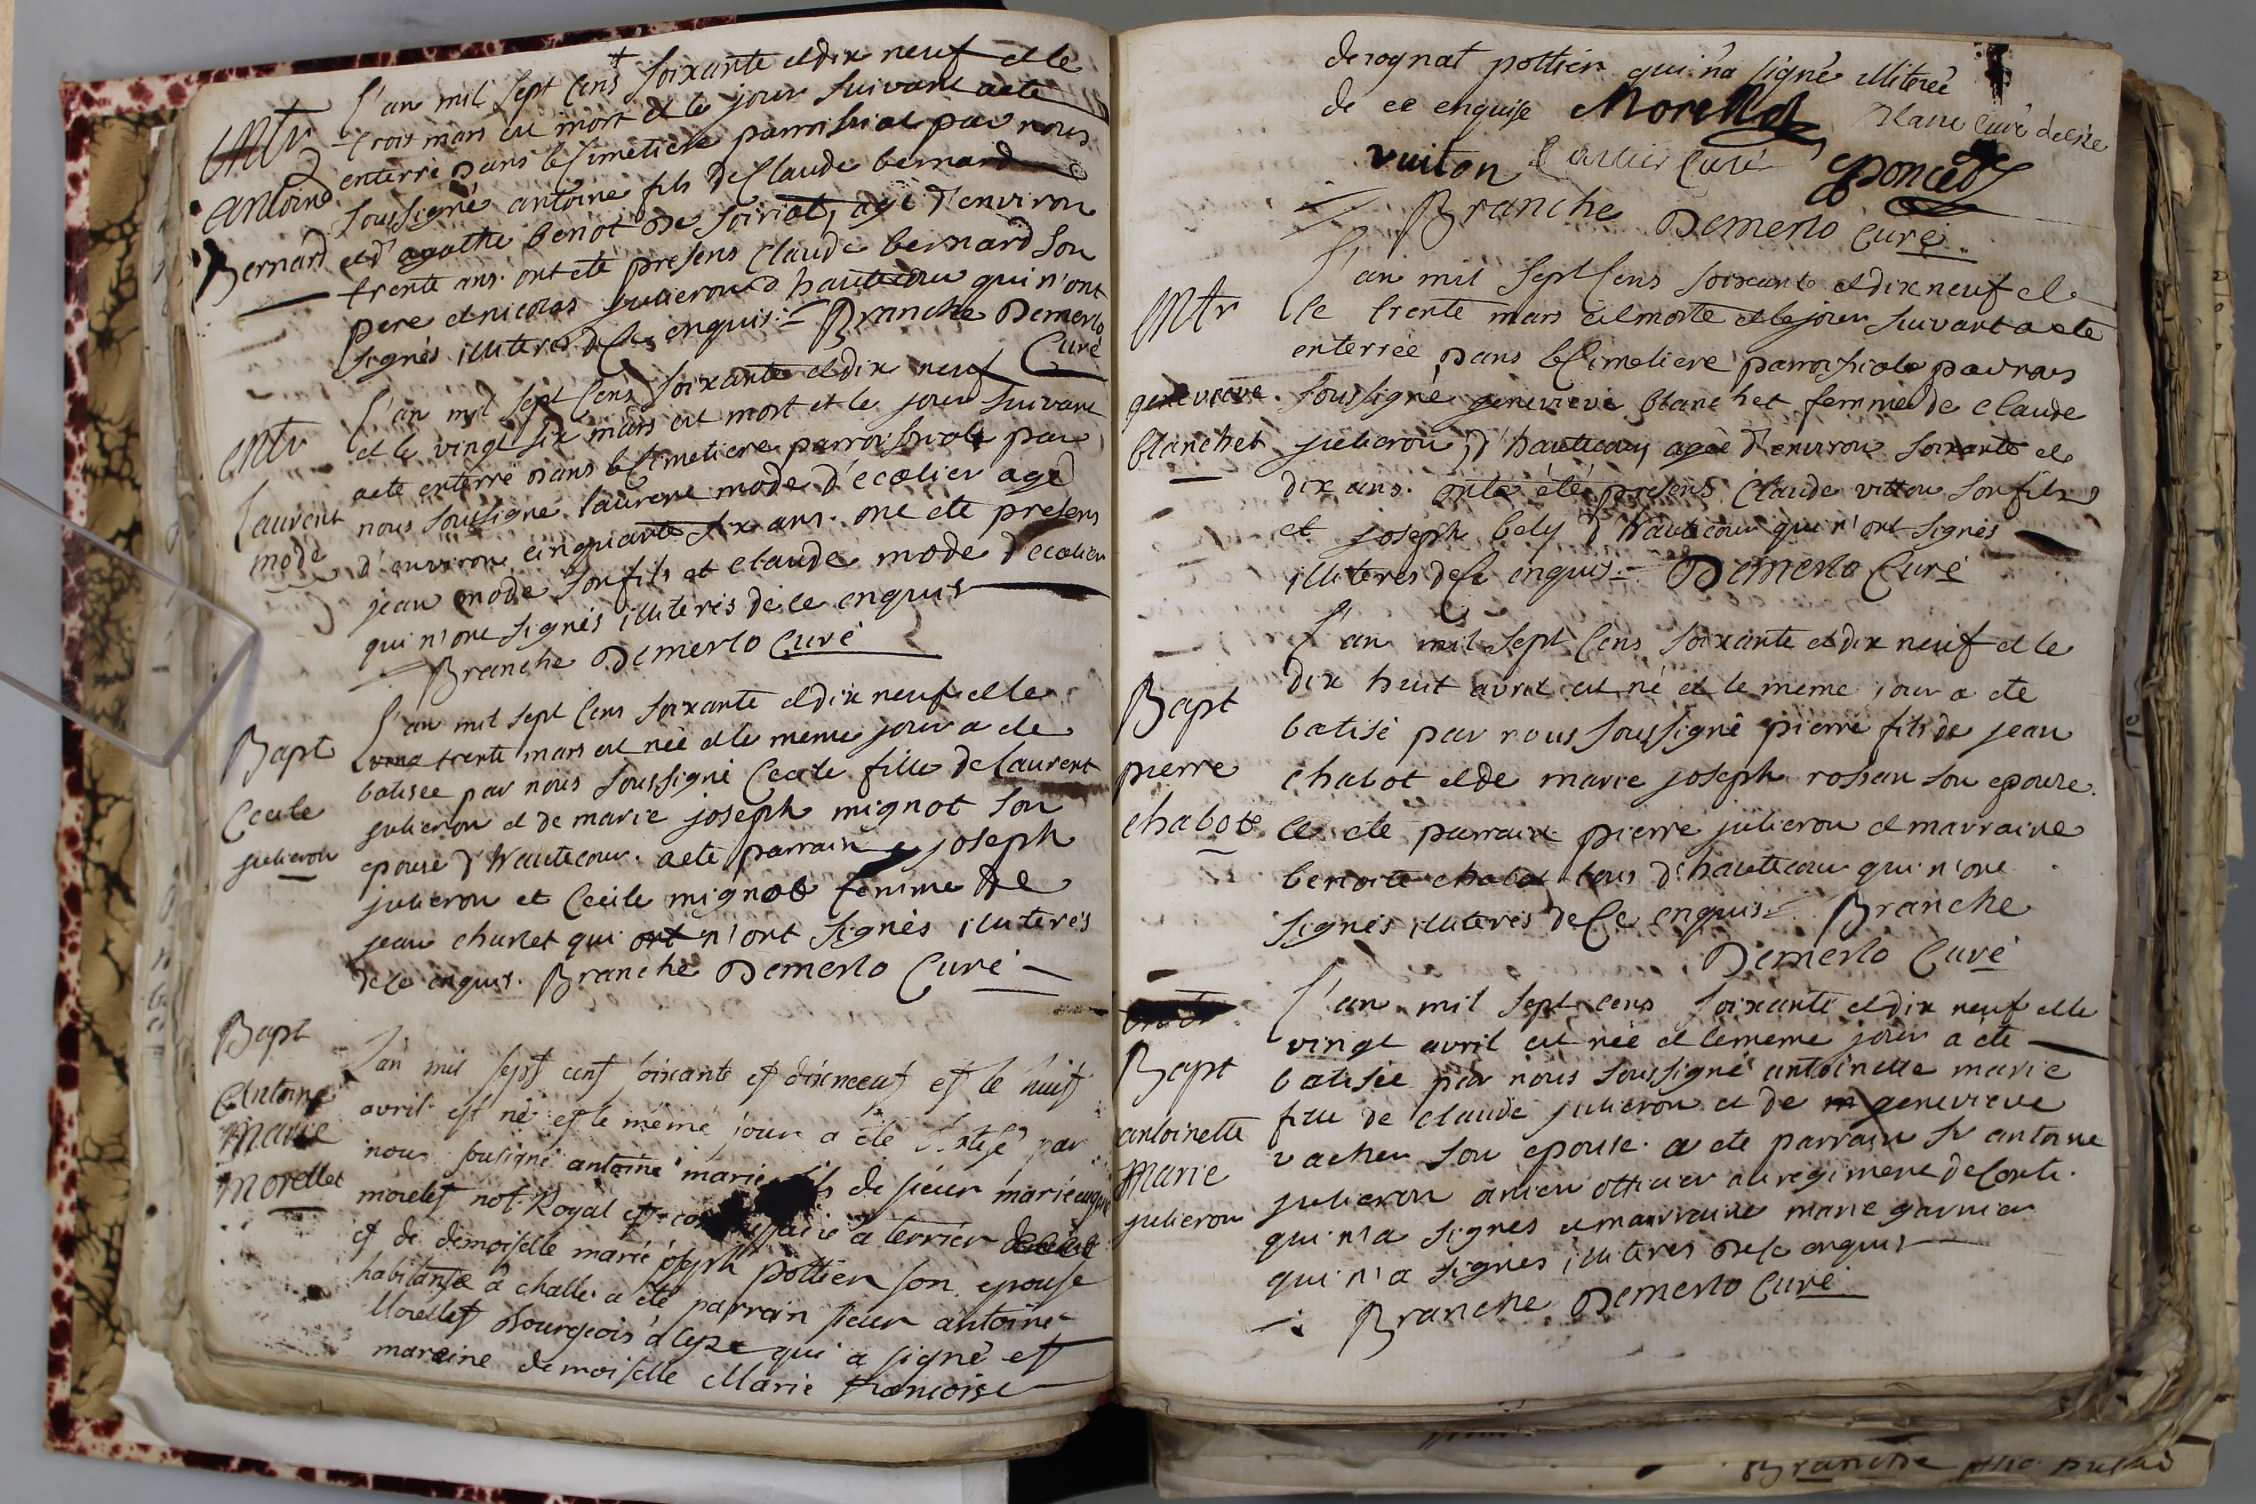 Mtr
antoine
Bernard
L'an mil sept cens soixante et dix neuf et le
trois mars est mort et le jour suivant a eté
enterré dans le Cimetiere parroissial par nous
soussigné antoine fils de Claude bernard
et d'agathe benot de soiriat, agé d'environ
trente ans. ont eté presens Claude bernard son
pere et nicolas julieron d'hautecour qui n'ont
signés illiterés de ce enquis. Branche Demerlo
Curé
Mtr
Laurent
mode
L'an mil sept cens soixante et dix neuf
et le vingt six mars est mort et le jour suivant
a eté enterré dans le Cimetiere parroissiale par
nous soussigné laurent mode d'ecolier agé
d'environ cinquante six ans. ont eté presens
jean mode son fils et claude mode d'ecolier
qui n'ont signés illiterés de ce enquis
Branche Demerlo Curé
Bapt
Cecile
julieron
L'an mil sept cens soixante et dix neuf et le
trente mars est née et le meme jour a eté
batisée par nous soussigné Cecile fille de Laurent
julieron et de marie joseph mignot son
epouse d'Hautecour. a eté parrain joseph
julieron et Cecile mignot femme de
jean charlet qui ont n'ont signés illiterés
de ce enquis. Branche Demerlo Curé
Bapt
Antoine
Marie
Morellet
L'an mil sept cent soixante et dixneuf et le huit
avril est né et le même jour a eté batisé par
nous sousigné antoine marie fils de sieur marie
morelet not. Royal et a terrier
et de demoiselle marie joseph pottier son epouse
habitants a challe. a eté parrain sieur antoine
Morellet Bourgeois qui a signé et
maraine demoiselle Marie francoise
de rognat pottier qui n'a signé illiterée
de ce enquise Morellet
vuiton Curé Poncet
Branche Demerlo Curé
Mtr
genevieve
blanchet
L'an mil sept Cens soixante et dix neuf et
le trente mars est morte et le jour suivant a eté
enterrée dans le Cimetiere parroissiale par nous
soussigné genevieve blanchet femme de claude
julieron, d'hautecour, agée d'environ soixante et
dix ans. ont eté presens Claude vitton son fils
et joseph bely d'Hautecour qui n'ont signés
illiteres de ce enquis. Demerlo Curé
Bapt
pierre
chabot
L'an mil sept Cens soixante et dix neuf et le
dix huit avril est né et le meme jour a eté
batisé par nous soussigné pierre fils de jean
chabot et de marie joseph rossan son epouse.
a eté parrain pierre julieron et marraine
benoite chabot tous d'hautecour qui n'ont
signés illiterés de Ce enquis. Branche
Demerlo Curé
Bapt
antoinette
Marie
julieron
L'an mil sept cens soixante et dix neuf et le
vingt avril est née et le meme jour a eté
batisée par nous soussigné antoinette marie
fille de claude julieron et de m genevieve
vacher son epouse. a eté parrain sr antoine
julieron ancien officier au regiment de Conti.
qui n'a signés et marraine marie garnier
qui n'a signés illiteres de ce enquis
Branche Demerlo Curé
Branche